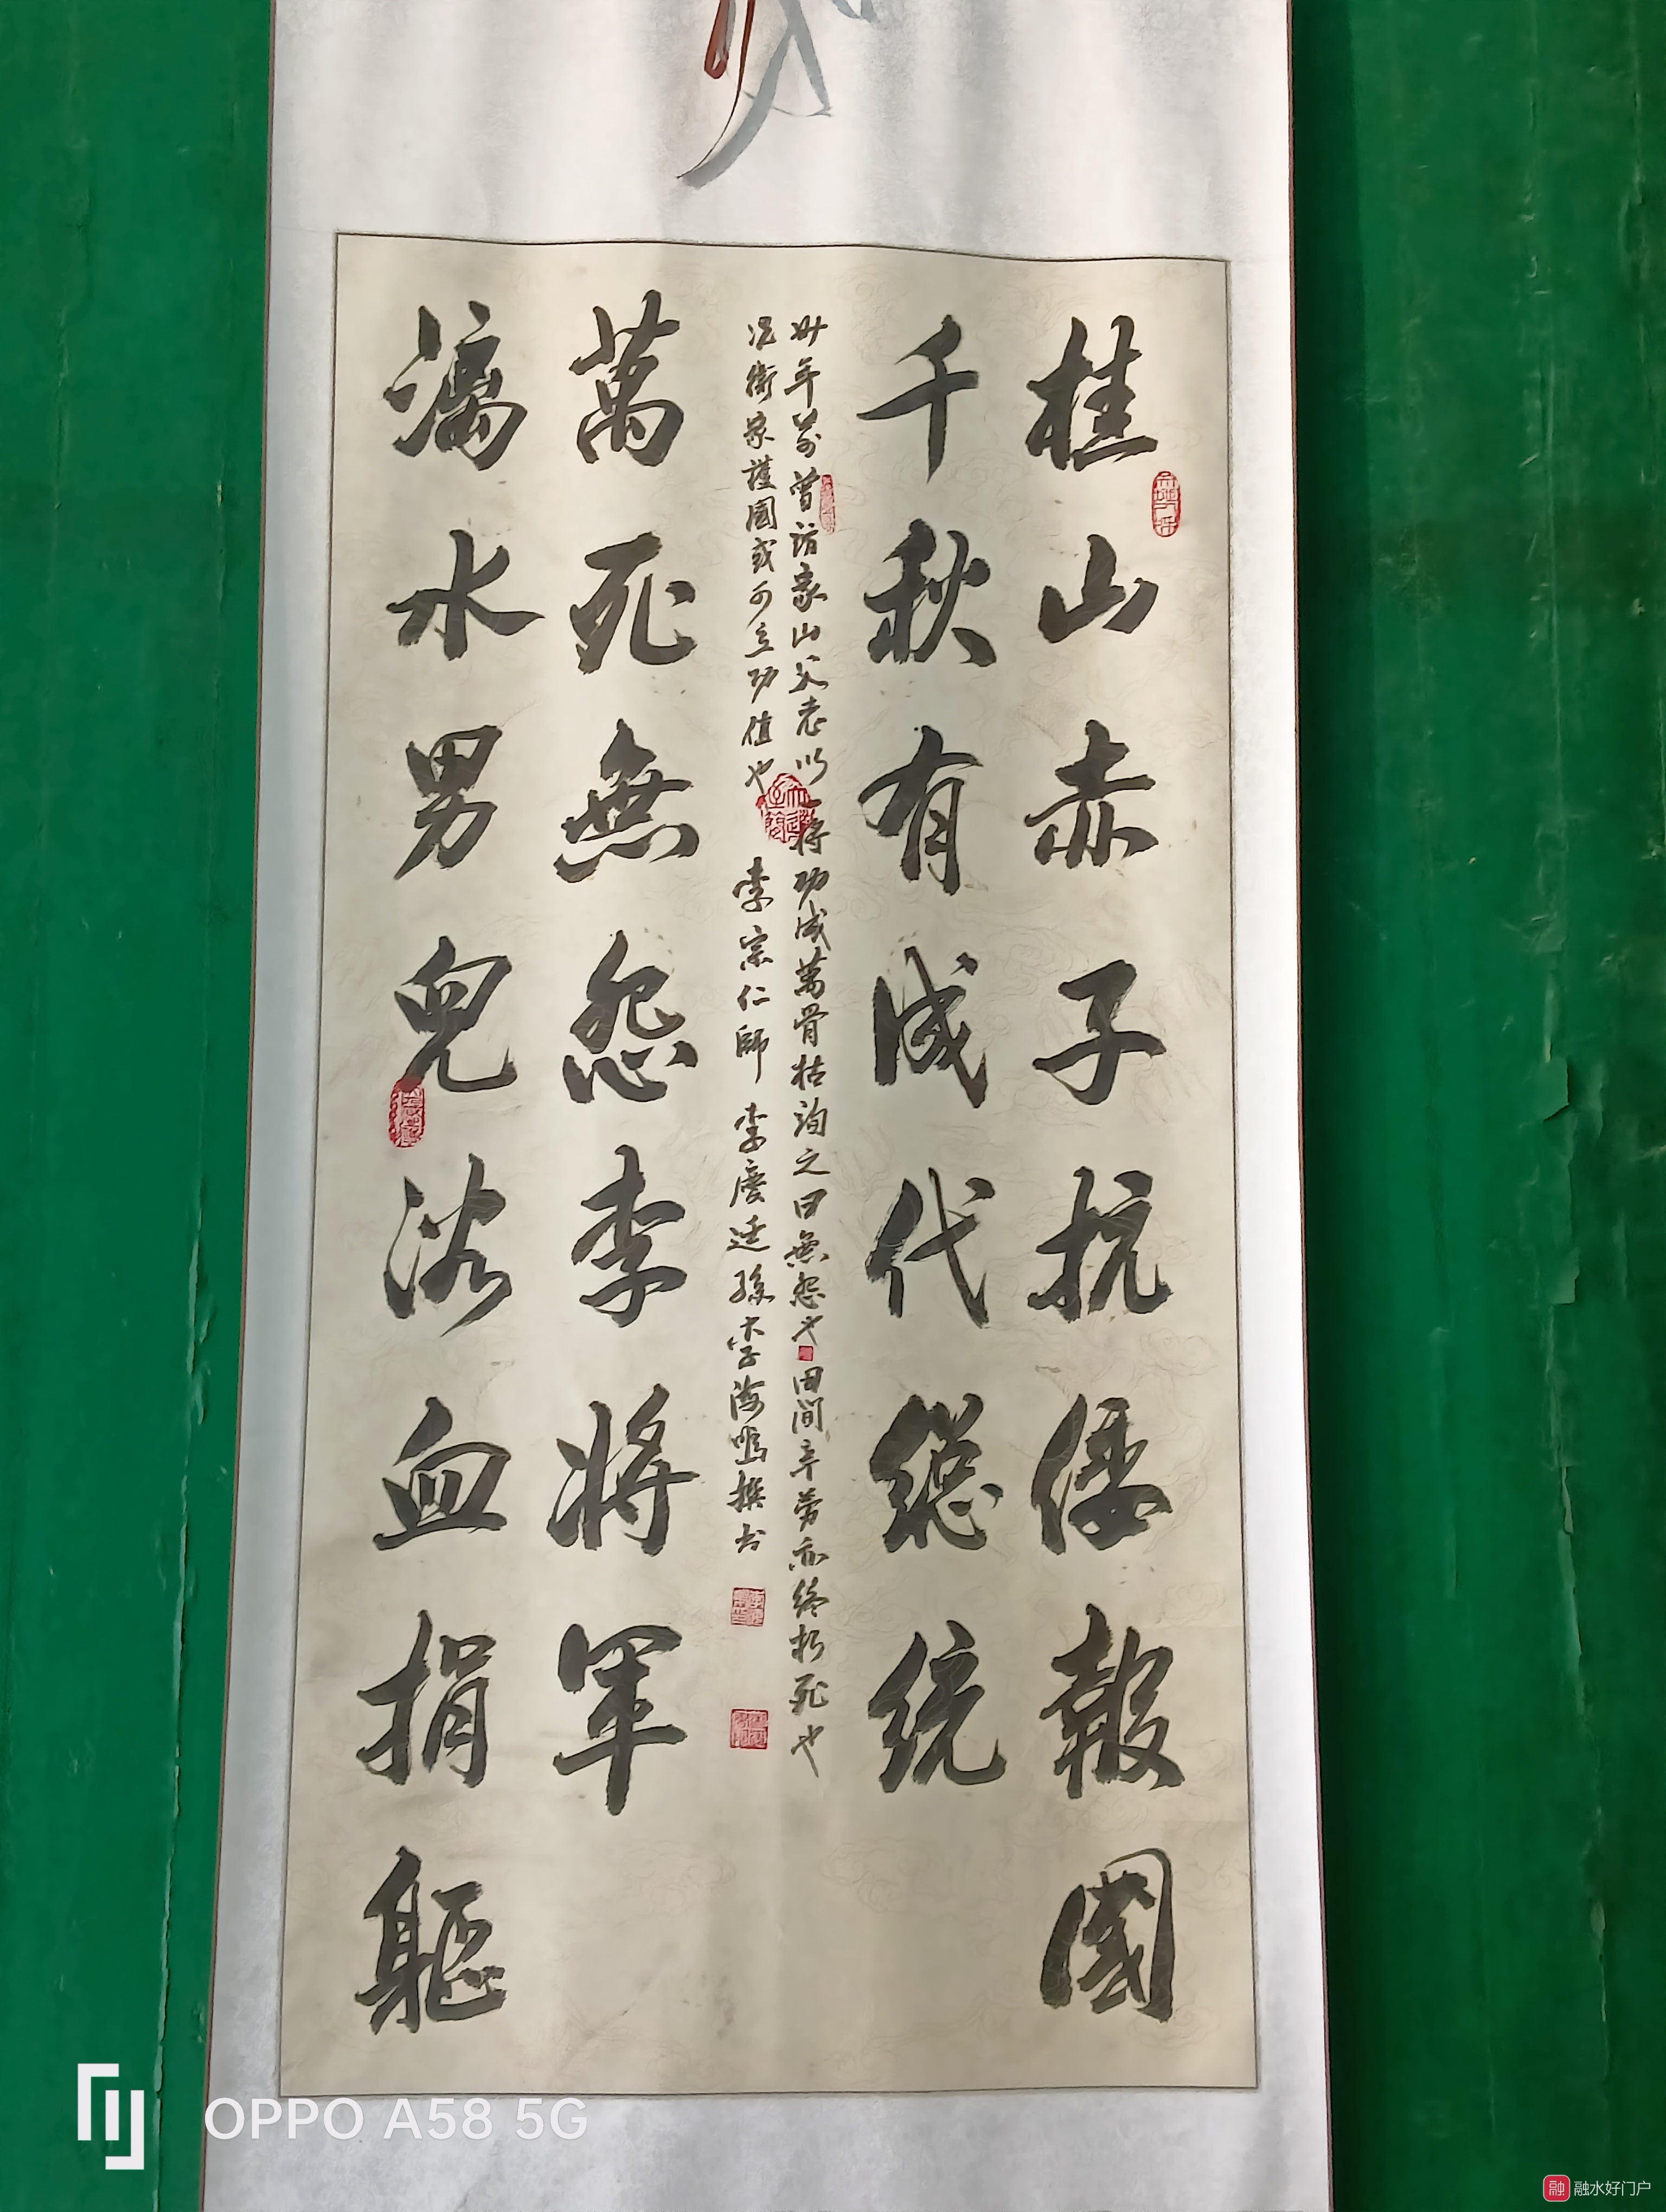 桂山赤子抗倭報國
千秋有成代總統
卅年前曾訪象山父老以一將功成萬骨枯詢之曰無怨也田間辛勞亦終於死也
況衛家護國或可立功值也 李宗仁師 李慶廷孫李海鳴撰書
萬死無怨李將軍
漓水男兒浴血捐軀
OPPO A58 5G
融水好门户